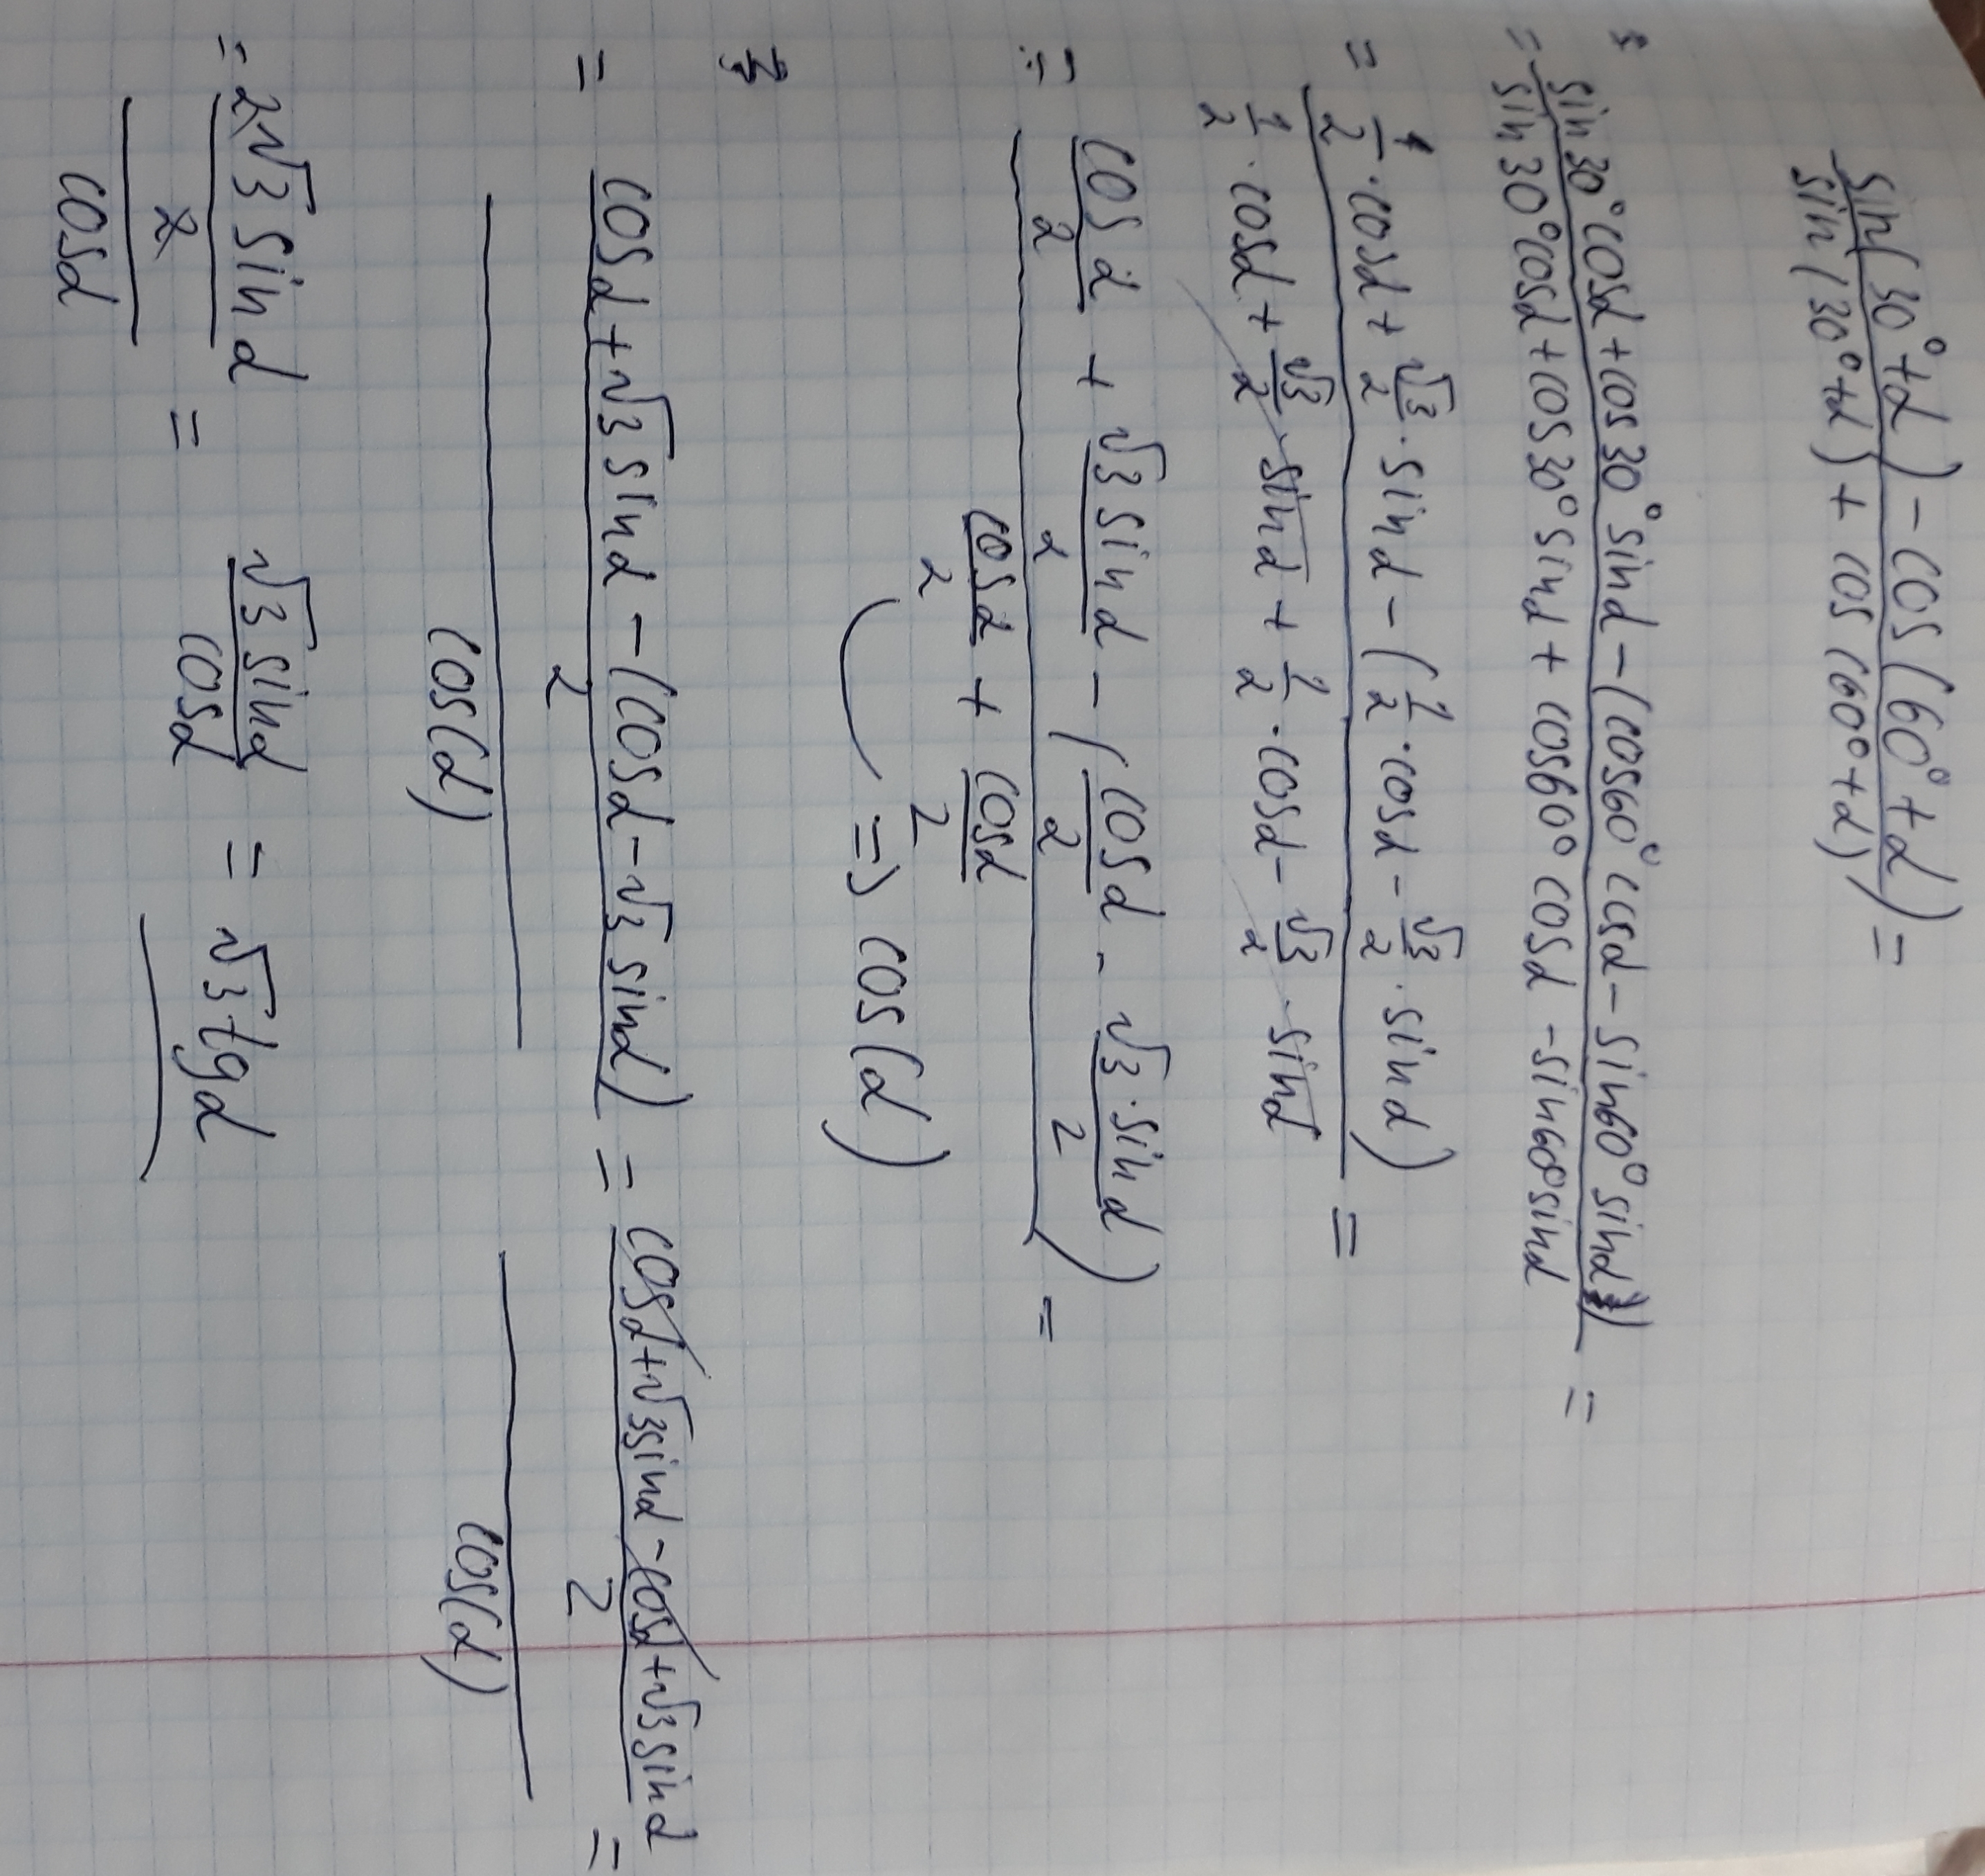 sin(30°+α) - cos(60°+α) =
sin(30°+α) + cos(60°+α)
= sin30°cosα + cos30°sinα - (cos60°cosα - sin60°sinα) =
sin30°cosα + cos30°sinα + cos60°cosα - sin60sinα
= 1/2 · cosα + √3/2 · sinα - (1/2 · cosα - √3/2 · sinα) =
1/2 · cosα + √3/2 · sinα + 1/2 · cosα - √3/2 · sinα
= cosα/2 + √3 sinα/2 - (cosα/2 - √3 · sinα/2) =
cosα/2 + cosα/2
=> cos(α)
= cosα + √3 sinα - (cosα - √3 sinα) = cosα + √3 sinα - cosα + √3 sinα =
2 2
cos(α) cos(α)
= 2√3 sinα/2 = √3 sinα/cosα = √3 tgα
cosα